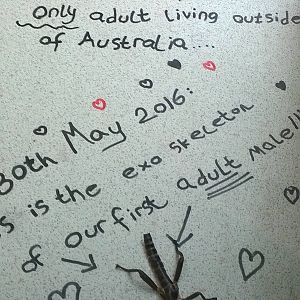 Only adult living outside
of Australia....
30th May 2016:
is the exo skeleton
of our first adult male!!